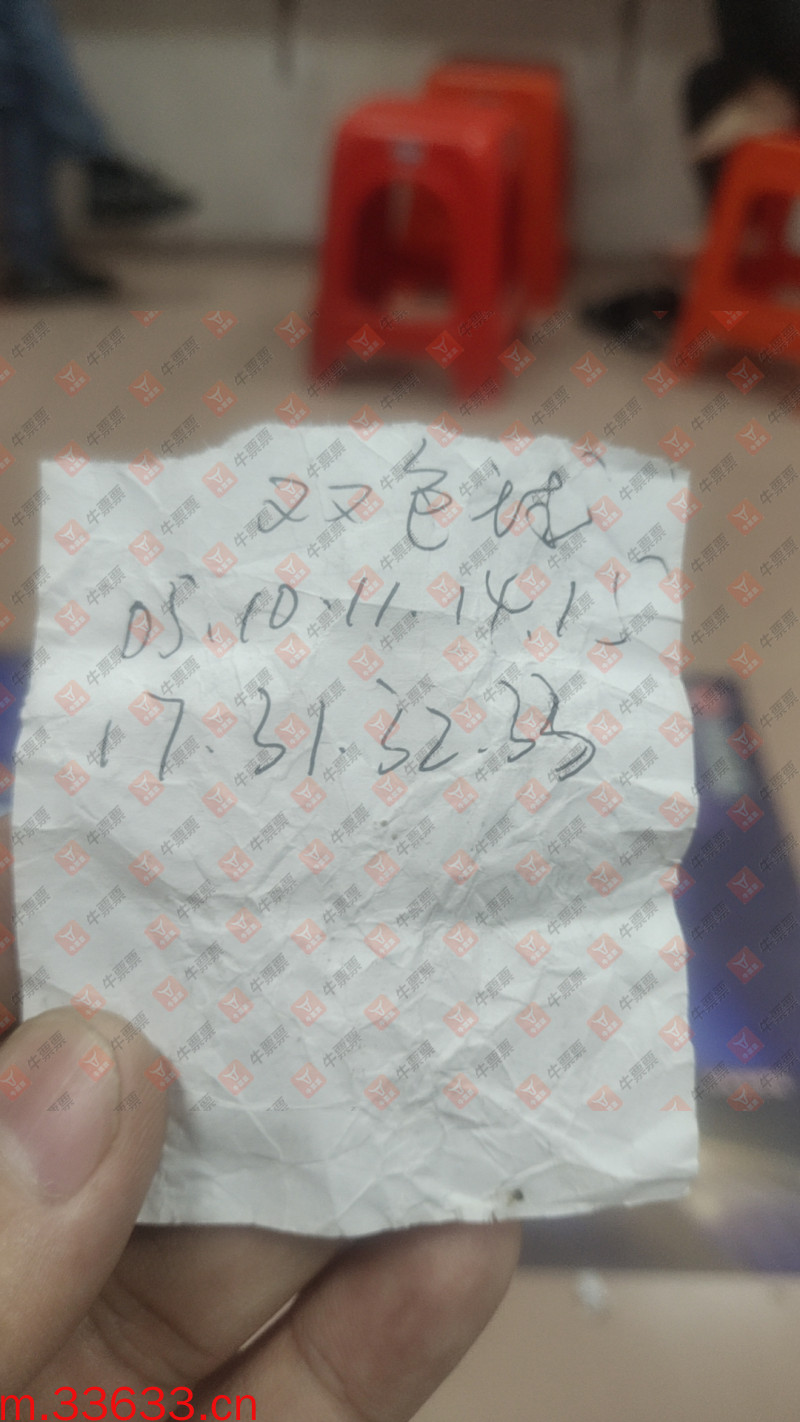 双色球
05.10.11.14.15
17.31.32.33
牛票票
m.33633.cn